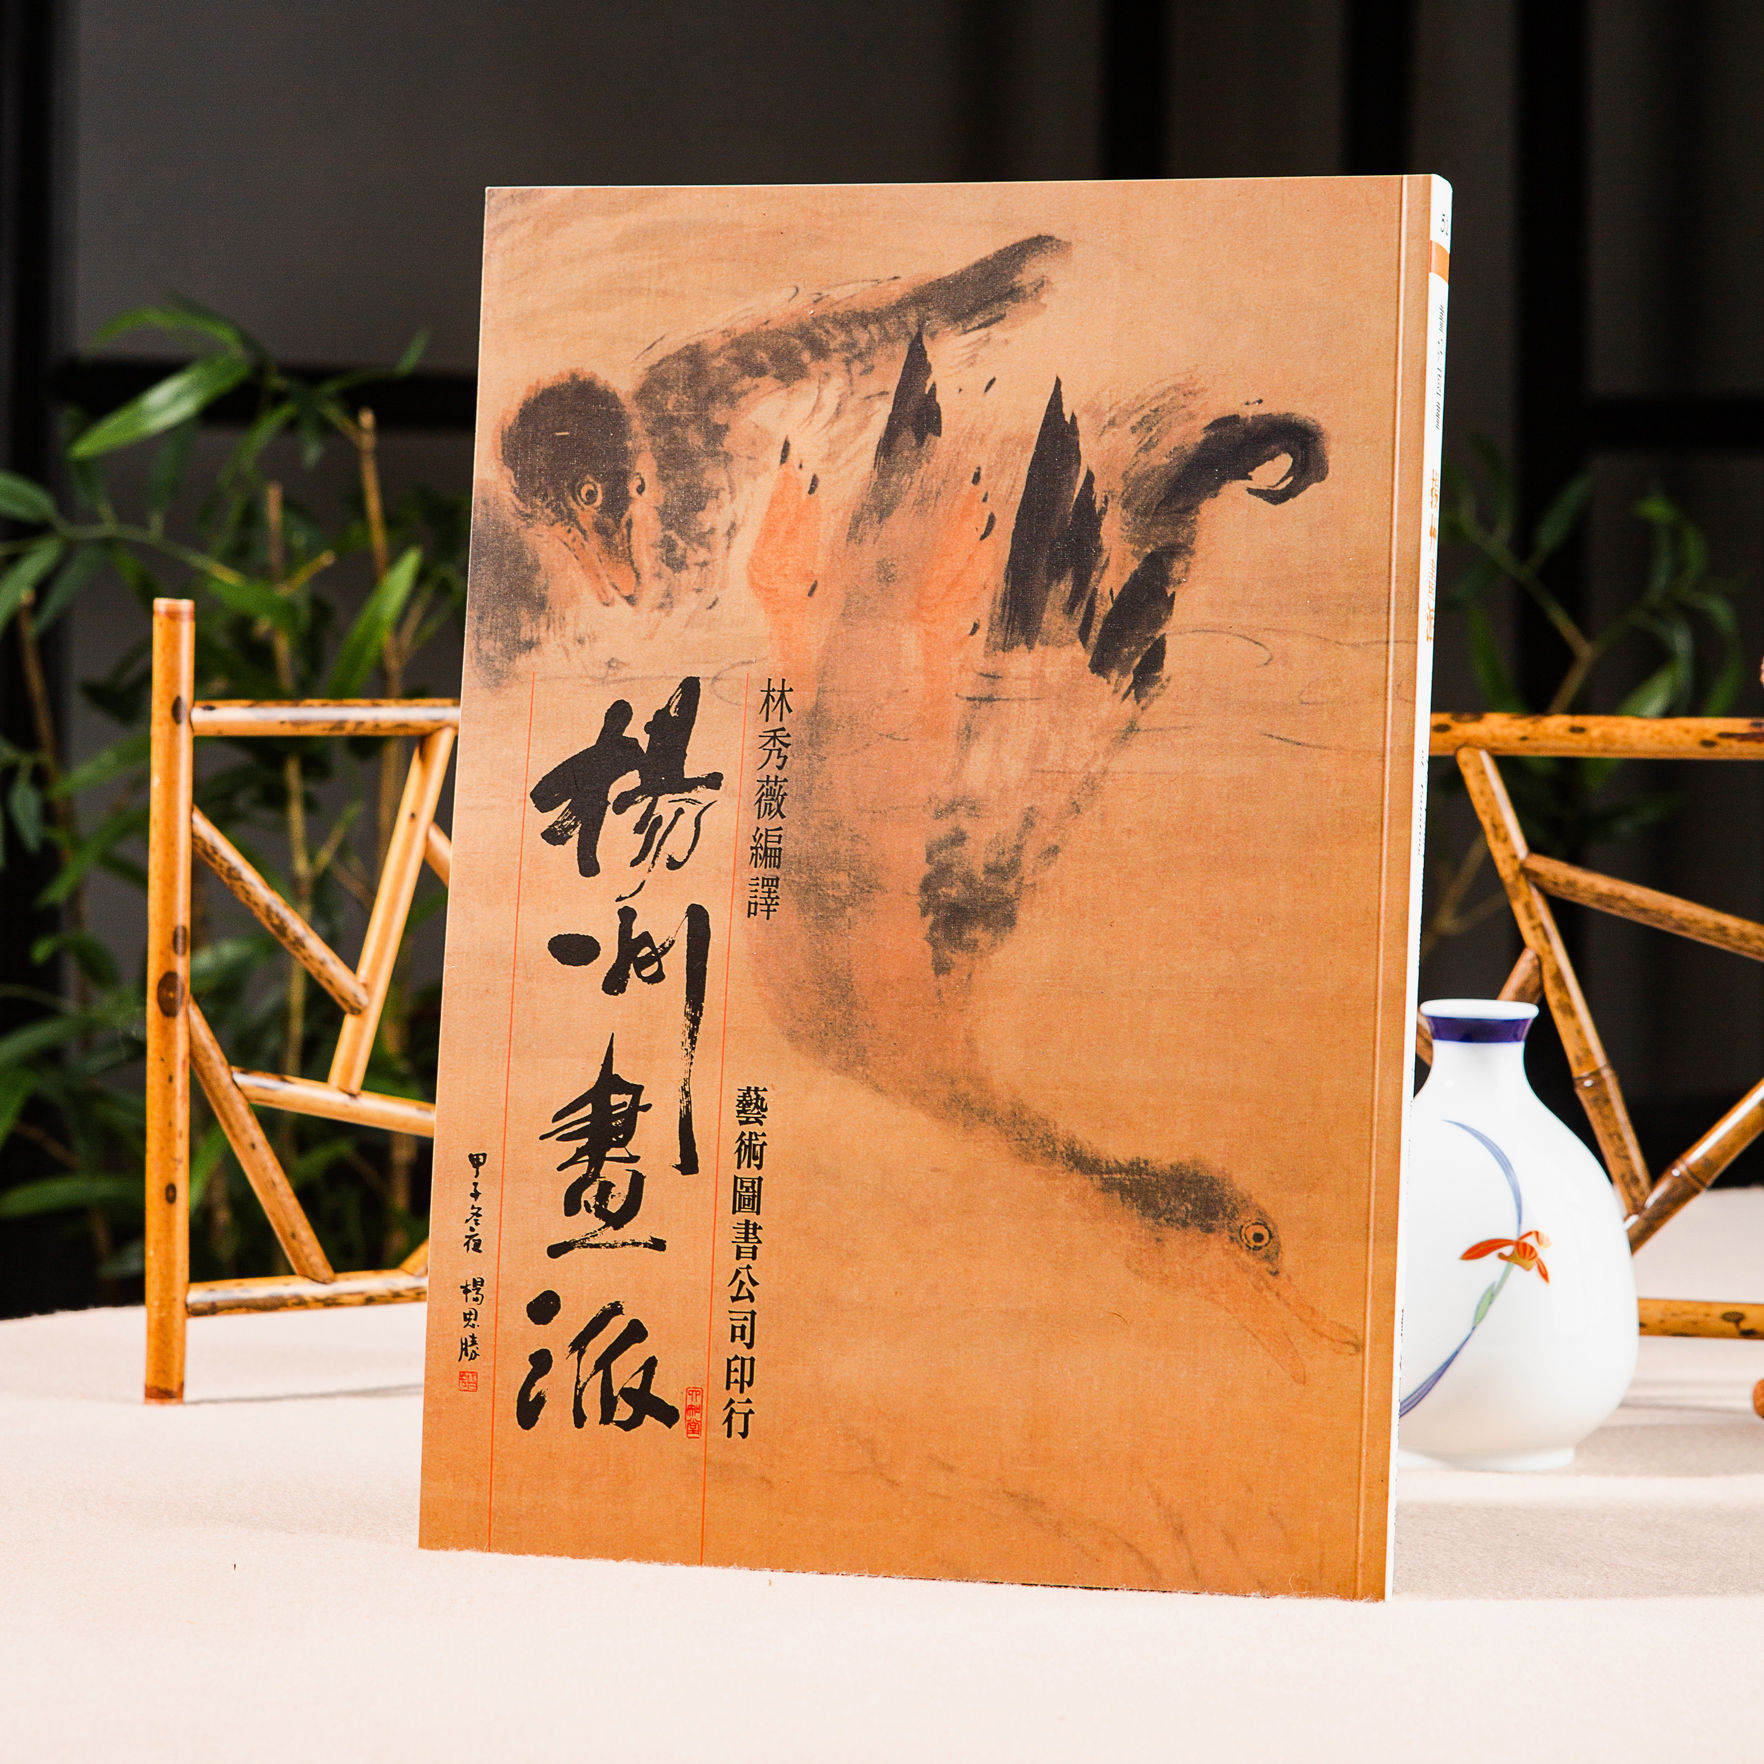 林秀薇編譯
楊州畫派
藝術圖書公司印行
甲子冬夜 楊思勝